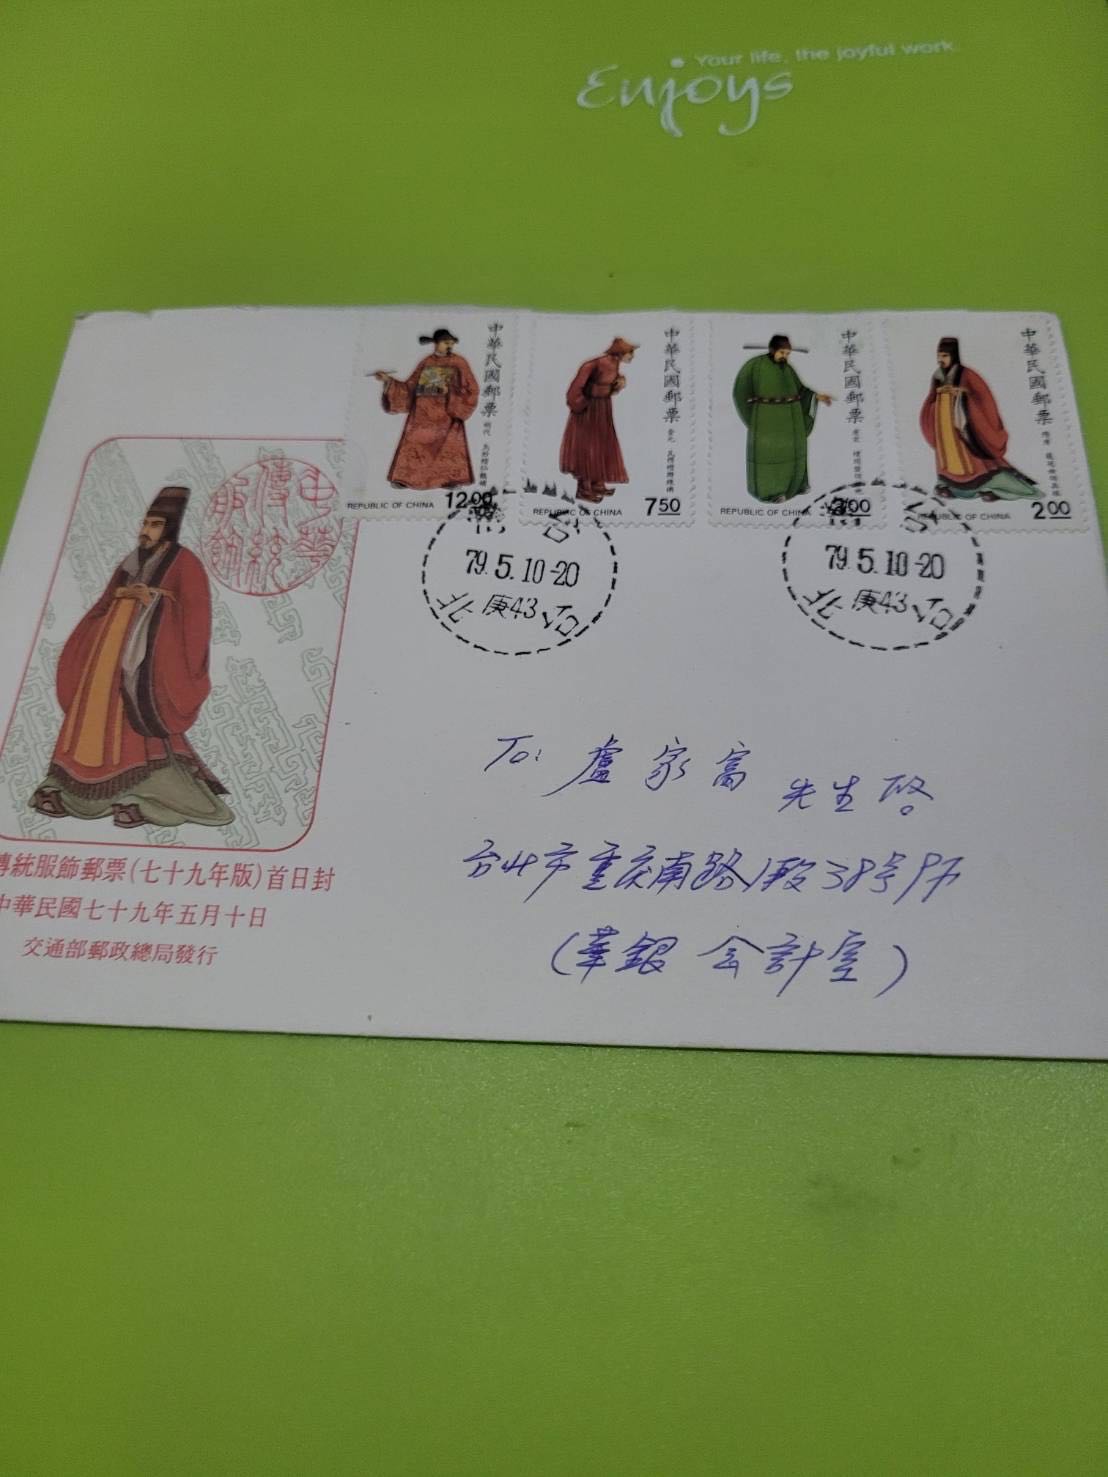 Your life, the joyful work
Enjoys
中華民國郵票
REPUBLIC OF CHINA
12.00
中華民國郵票
REPUBLIC OF CHINA
7.50
中華民國郵票
REPUBLIC OF CHINA
中華民國郵票
REPUBLIC OF CHINA
2.00
79.5.10-20
北 庚43 台
79.5.10-20
北 庚43 台
中華
傳統
服飾
To: 盧家富 先生啓
台北市重慶南路1段38號
(華銀 会計室)
傳統服飾郵票(七十九年版)首日封
中華民國七十九年五月十日
交通部郵政總局發行